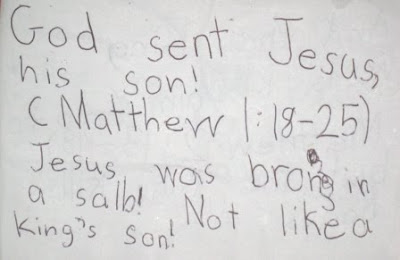 God sent Jesus,
his son!
(Matthew 1:18-25)
Jesus was brong in
a salb! Not like a
King's son!